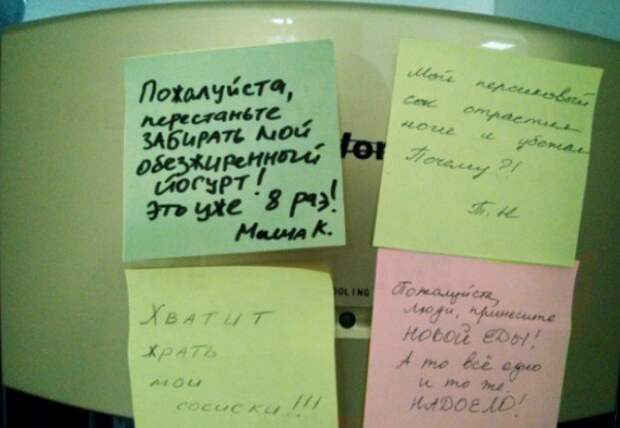 Пожалуйста,
перестаньте
ЗАБИРАТЬ МОЙ
ОБЕЗЖИРЕННЫЙ
ЙОГУРТ!
Это уже 8 раз!
Маша К.
Мой персиковый
сок отрастил
ноги и убежал
Почему?!
Т. Н
ХВАТИТ
ЖРАТЬ
МОИ
СОСИСКИ!!!
Пожалуйста,
люди, принесите
НОВОЙ ЕДЫ!
А то всё одно
и то же.
НАДОЕЛО!